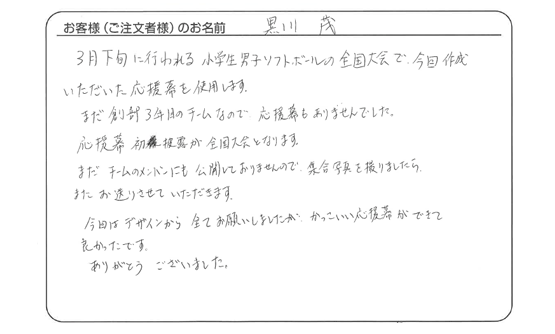 お客様（ご注文者様）のお名前 黒川 茂
3月下旬に行われる小学生男子ソフトボールの全国大会で、今回作成
いただいた応援幕を使用します。
まだ創部3年目のチームなので応援幕もありませんでした。
応援幕初披露が全国大会となります。
まだチームのメンバーにも公開しておりませんので、集合写真を撮りましたら、
またお送りさせていただきます。
今回はデザインから全てお願いしましたが、かっこいい応援幕ができて
良かったです。
ありがとうございました。